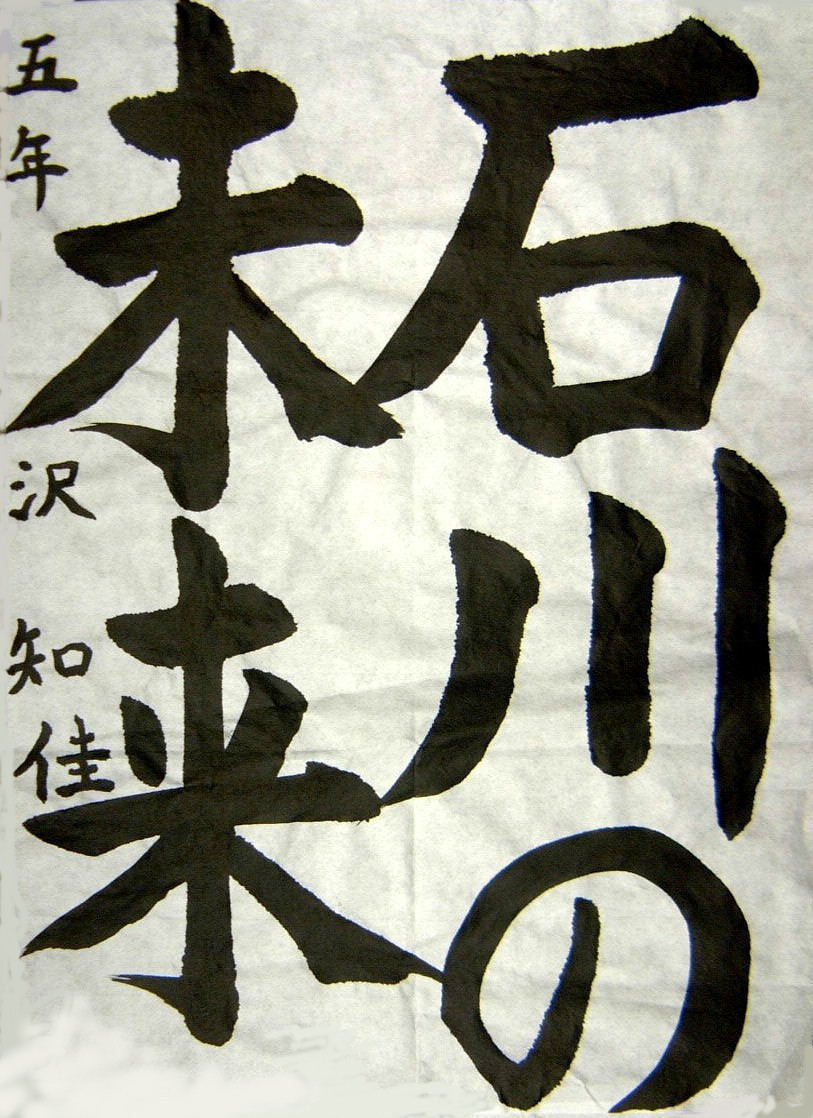 石川の
未来
五年 沢 知佳